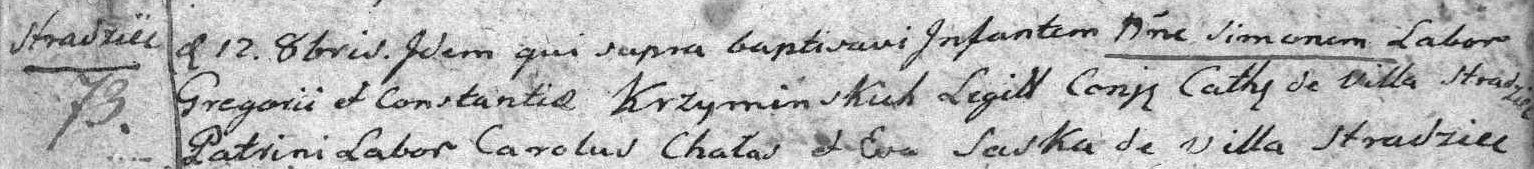 Stradziec
73.
d 12. 8bris. Idem qui supra baptisavi Infantem Nñe Simonem Labor
Gregorii et Constantiæ Krzyminskich Legitt Conjg Cathg de Villa Stradziec
Patrini Labor Carolus Chałas et Eva Saska de Villa Stradziec